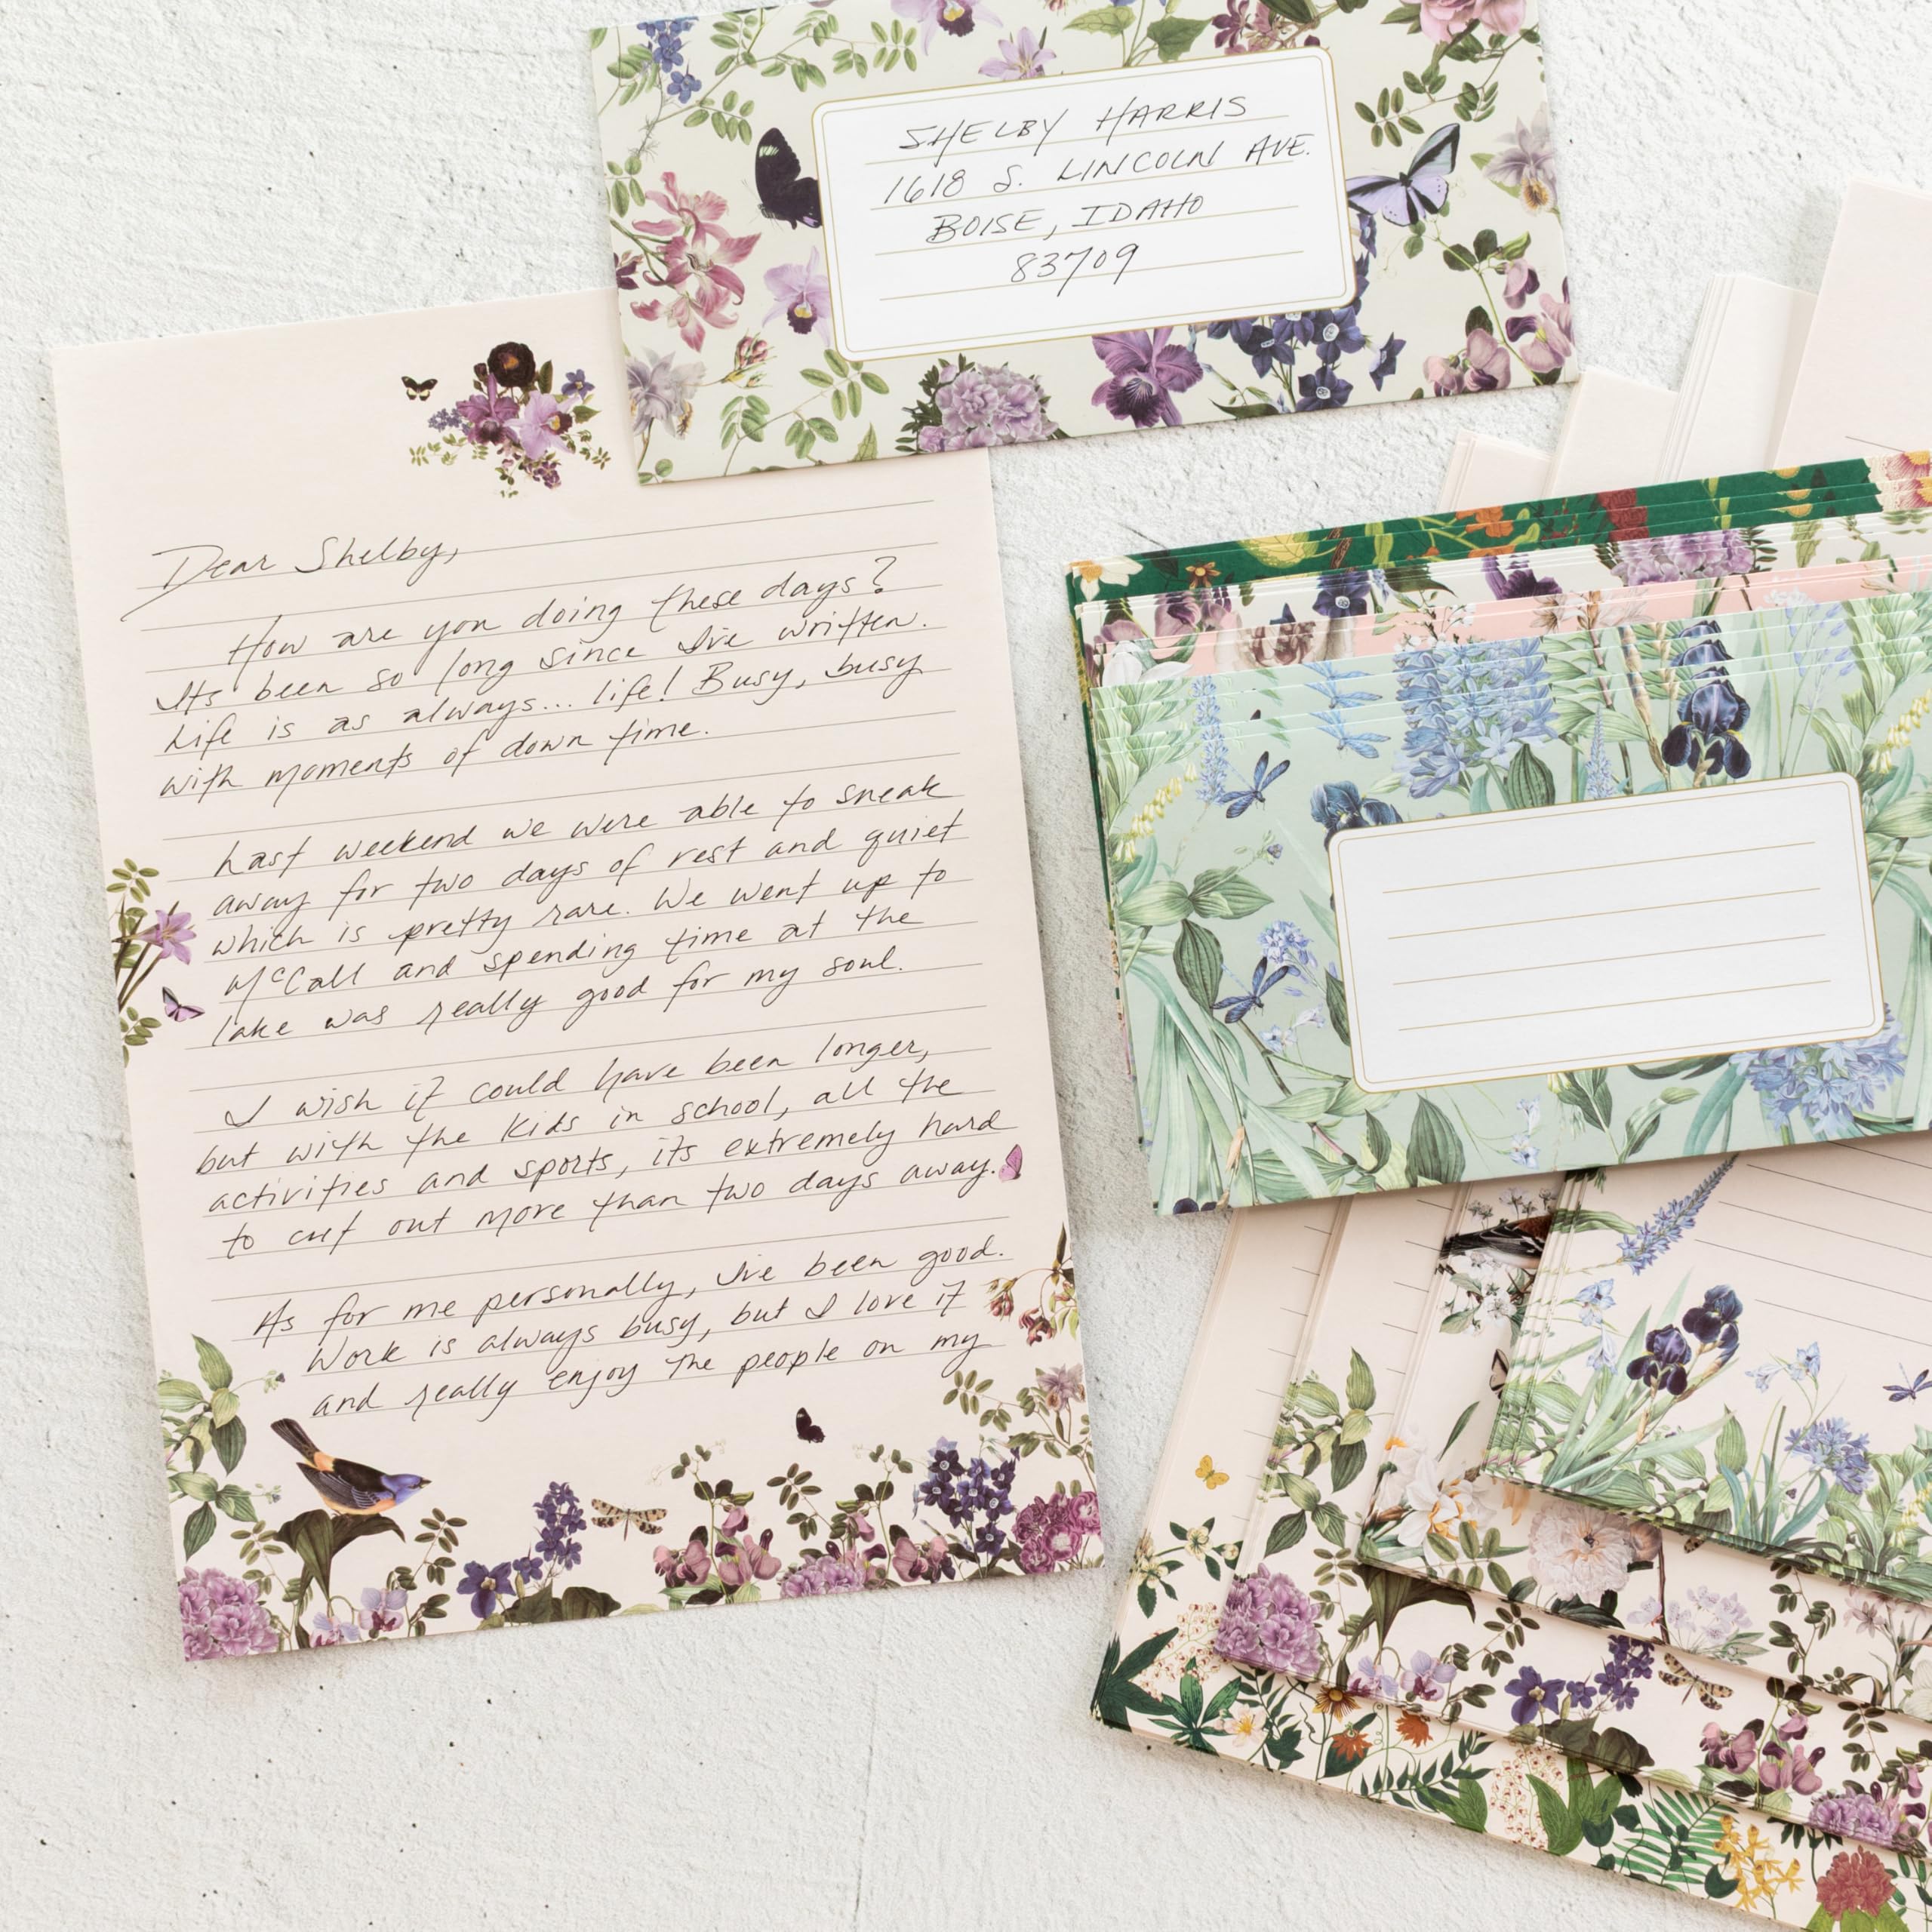 SHELBY HARRIS
1618 S. LINCOLN AVE.
BOISE, IDAHO
83709
Dear Shelby,
How are you doing these days?
Its been so long since I've written.
Life is as always... life! Busy, busy
with moments of down time.
Last weekend we were able to sneak
away for two days of rest and quiet
which is pretty rare. We went up to
McCall and spending time at the
lake was really good for my soul.
I wish it could have been longer,
but with the kids in school, all the
activities and sports, its extremely hard
to cut out more than two days away.
As for me personally, I've been good.
Work is always busy, but I love it
and really enjoy the people on my